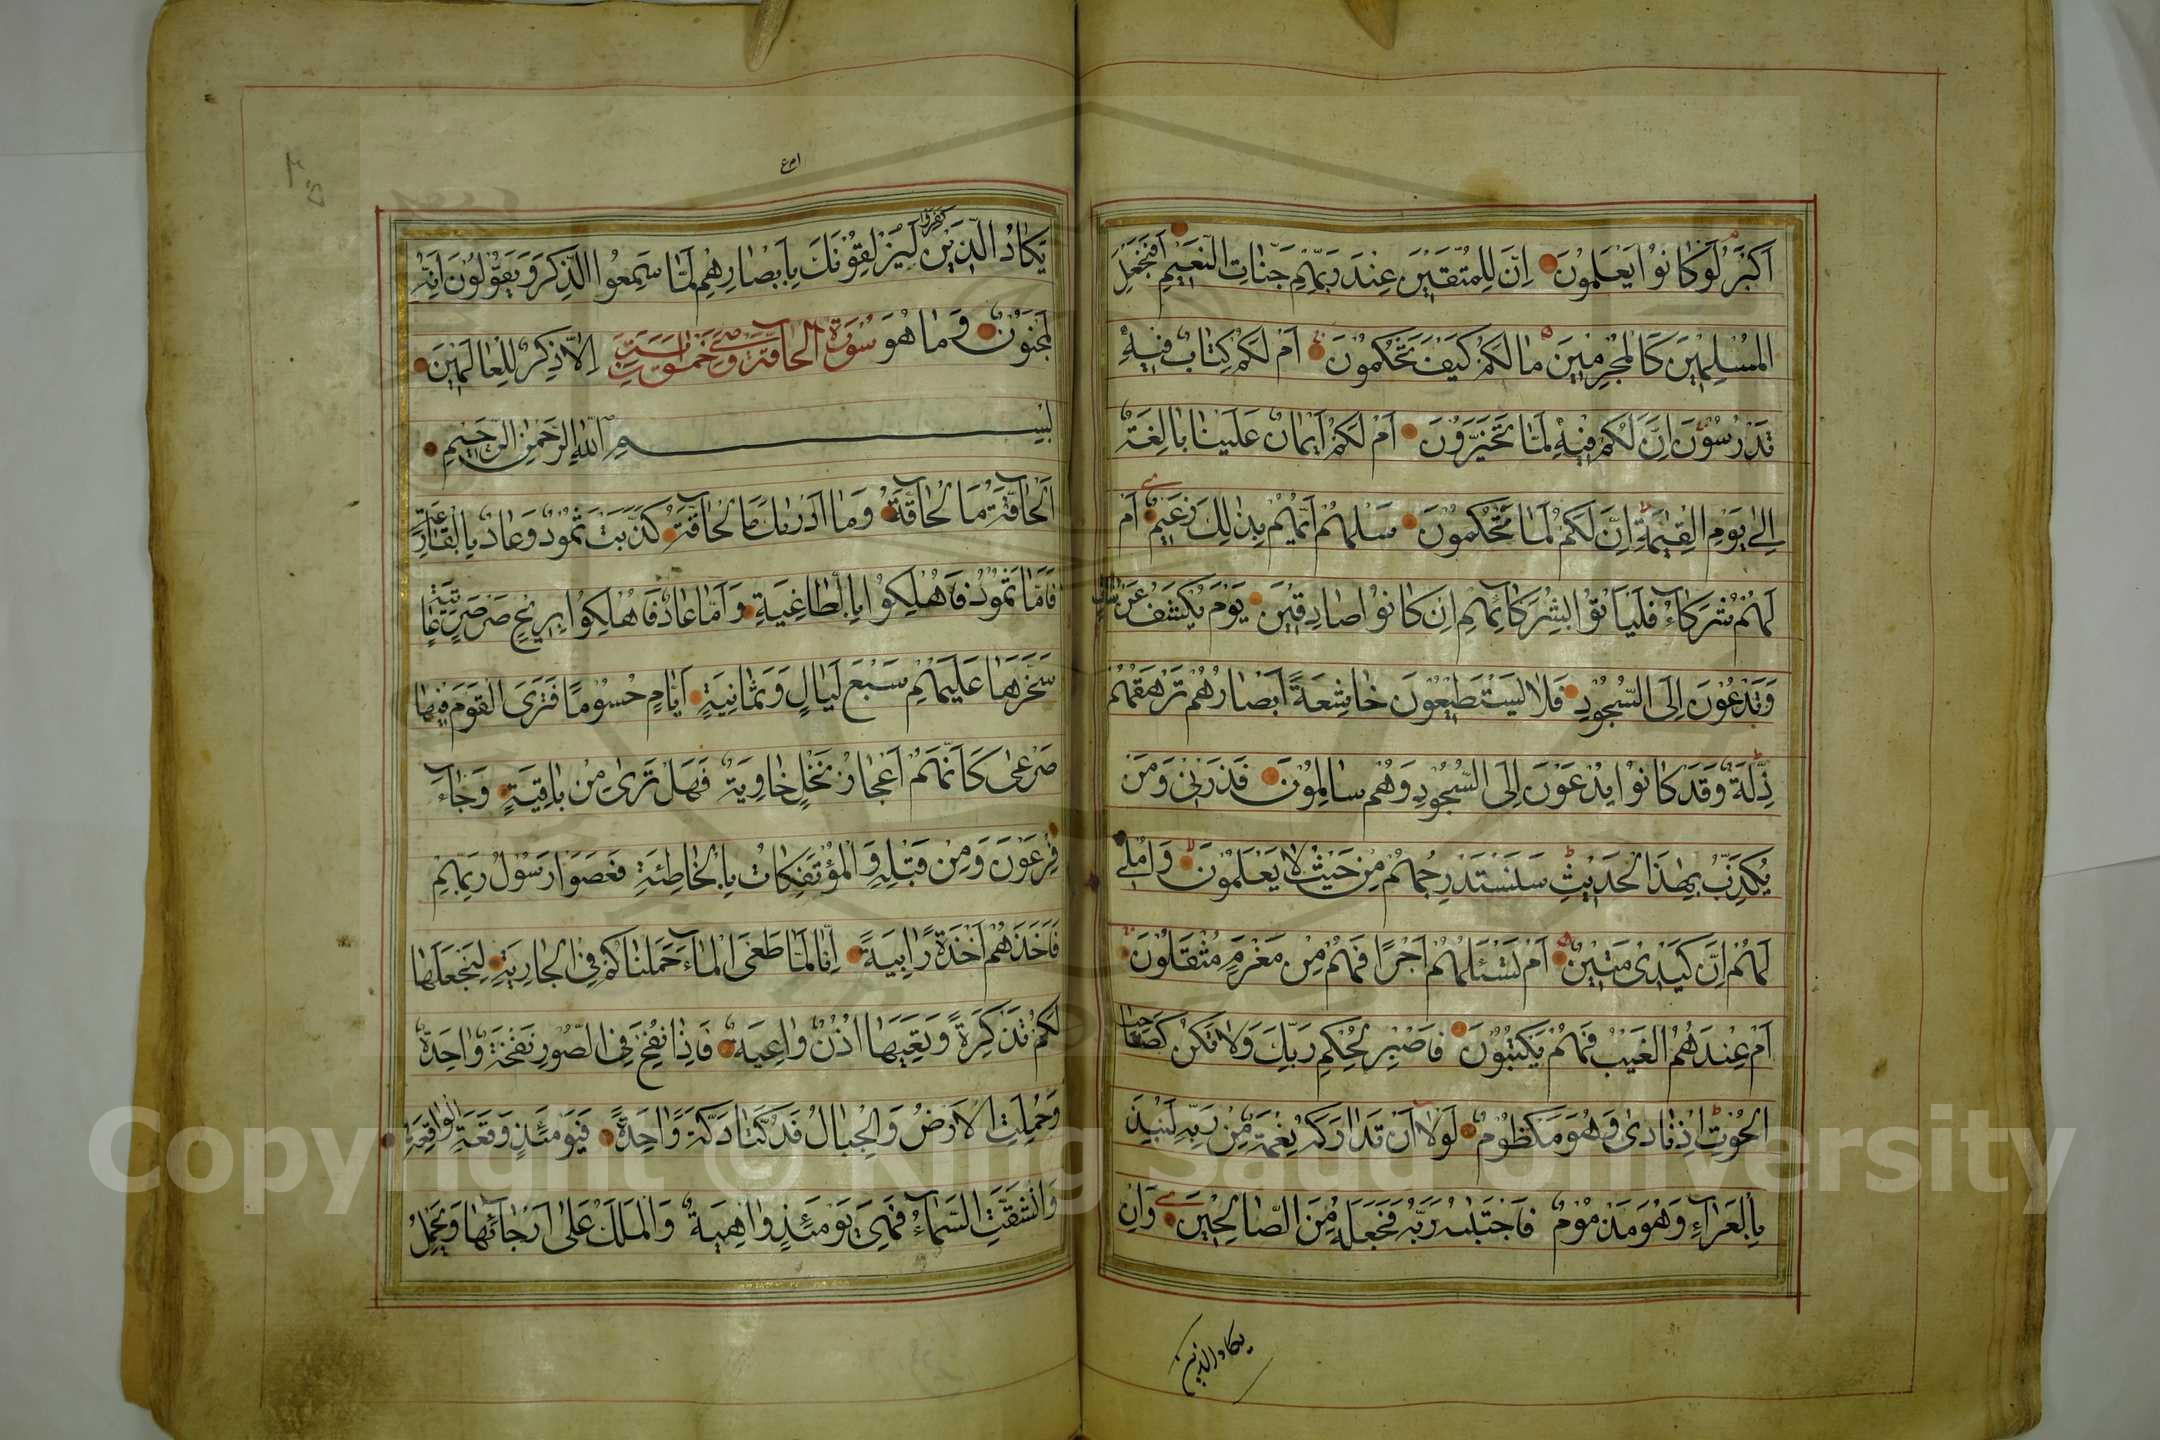 اَكْبَرُ لَوْ كَانُوا يَعْلَمُونَ اِنَّ لِلْمُتَّقِينَ عِنْدَ رَبِّهِمْ جَنَّاتِ النَّعِيمِ اَفَنَجْعَلُ
الْمُسْلِمِينَ كَالْمُجْرِمِينَ مَا لَكُمْ كَيْفَ تَحْكُمُونَ اَمْ لَكُمْ كِتَابٌ فِيهِ
تَدْرُسُونَ اِنَّ لَكُمْ فِيهِ لَمَا تَخَيَّرُونَ اَمْ لَكُمْ اَيْمَانٌ عَلَيْنَا بَالِغَةٌ
اِلَى يَوْمِ الْقِيٰمَةِ اِنَّ لَكُمْ لَمَا تَحْكُمُونَ سَلْهُمْ اَيُّهُمْ بِذٰلِكَ زَعِيمٌ اَمْ
لَهُمْ شُرَكَآءُ فَلْيَاْتُوا بِشُرَكَآئِهِمْ اِنْ كَانُوا صَادِقِينَ يَوْمَ يُكْشَفُ عَنْ سَاقٍ
وَيُدْعَوْنَ اِلَى السُّجُودِ فَلَا يَسْتَطِيعُونَ خَاشِعَةً اَبْصَارُهُمْ تَرْهَقُهُمْ
ذِلَّةٌ وَقَدْ كَانُوا يُدْعَوْنَ اِلَى السُّجُودِ وَهُمْ سَالِمُونَ فَذَرْنِى وَمَنْ
يُكَذِّبُ بِهٰذَا الْحَدِيثِ سَنَسْتَدْرِجُهُمْ مِنْ حَيْثُ لَا يَعْلَمُونَ وَاُمْلِى
لَهُمْ اِنَّ كَيْدِى مَتِينٌ اَمْ تَسْئَلُهُمْ اَجْرًا فَهُمْ مِنْ مَغْرَمٍ مُثْقَلُونَ
اَمْ عِنْدَهُمُ الْغَيْبُ فَهُمْ يَكْتُبُونَ فَاصْبِرْ لِحُكْمِ رَبِّكَ وَلَا تَكُنْ كَصَاحِبِ
الْحُوتِ اِذْ نَادَى وَهُوَ مَكْظُومٌ لَوْلَا اَنْ تَدَارَكَهُ نِعْمَةٌ مِنْ رَبِّهِ لَنُبِذَ
بِالْعَرَآءِ وَهُوَ مَذْمُومٌ فَاجْتَبٰيهُ رَبُّهُ فَجَعَلَهُ مِنَ الصَّالِحِينَ وَاِنْ
يكاد الذين
يَكَادُ الَّذِينَ كَفَرُوا لَيُزْلِقُونَكَ بِاَبْصَارِهِمْ لَمَّا سَمِعُوا الذِّكْرَ وَيَقُولُونَ اِنَّهُ
لَمَجْنُونٌ وَمَا هُوَ اِلَّا ذِكْرٌ لِلْعَالَمِينَ
سُورَةُ الْحَآقَّةِ
بِسْمِ اللهِ الرَّحْمٰنِ الرَّحِيمِ
اَلْحَآقَّةُ مَا الْحَآقَّةُ وَمَا اَدْرٰيكَ مَا الْحَآقَّةُ كَذَّبَتْ ثَمُودُ وَعَادٌ بِالْقَارِعَةِ
فَاَمَّا ثَمُودُ فَاُهْلِكُوا بِالطَّاغِيَةِ وَاَمَّا عَادٌ فَاُهْلِكُوا بِرِيحٍ صَرْصَرٍ عَاتِيَةٍ
سَخَّرَهَا عَلَيْهِمْ سَبْعَ لَيَالٍ وَثَمَانِيَةَ اَيَّامٍ حُسُومًا فَتَرَى الْقَوْمَ فِيهَا
صَرْعَى كَاَنَّهُمْ اَعْجَازُ نَخْلٍ خَاوِيَةٍ فَهَلْ تَرَى مِنْ بَاقِيَةٍ وَجَآءَ
فِرْعَوْنُ وَمَنْ قَبْلَهُ وَالْمُؤْتَفِكَاتُ بِالْخَاطِئَةِ فَعَصَوْا رَسُولَ رَبِّهِمْ
فَاَخَذَهُمْ اَخْذَةً رَابِيَةً اِنَّا لَمَّا طَغَى الْمَآءُ حَمَلْنَاكُمْ فِى الْجَارِيَةِ لِنَجْعَلَهَا
لَكُمْ تَذْكِرَةً وَتَعِيَهَا اُذُنٌ وَاعِيَةٌ فَاِذَا نُفِخَ فِى الصُّورِ نَفْخَةٌ وَاحِدَةٌ
وَحُمِلَتِ الْاَرْضُ وَالْجِبَالُ فَدُكَّتَا دَكَّةً وَاحِدَةً فَيَوْمَئِذٍ وَقَعَتِ الْوَاقِعَةُ
وَانْشَقَّتِ السَّمَآءُ فَهِىَ يَوْمَئِذٍ وَاهِيَةٌ وَالْمَلَكُ عَلٰى اَرْجَآئِهَا وَيَحْمِلُ
Copyright © King Saud University